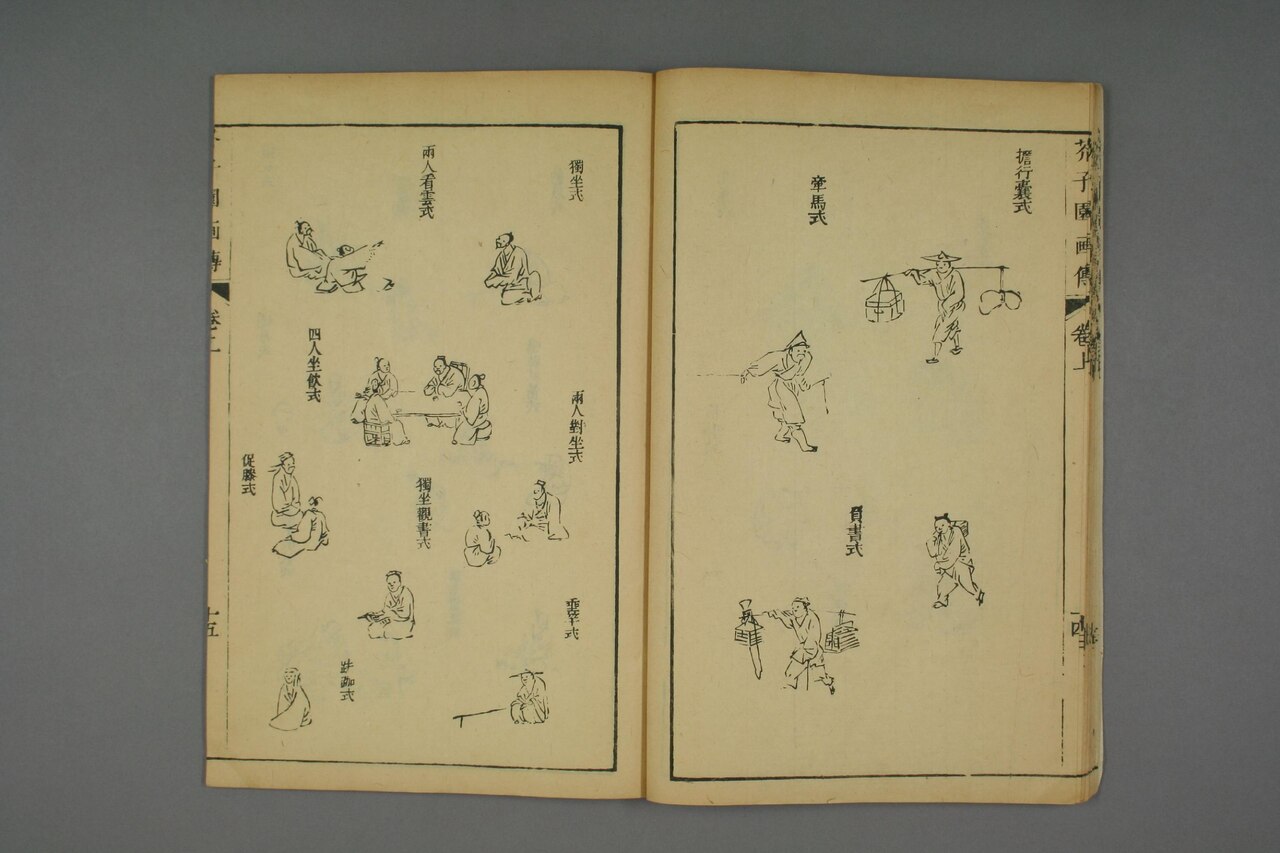 芥子園画傳
卷上
十四
擔行囊式
牽馬式
負書式
獨坐式
兩人看雲式
兩人對坐式
四人坐飲式
獨坐觀書式
促膝式
垂竿式
趺跏式
子園画傳
卷二
十五